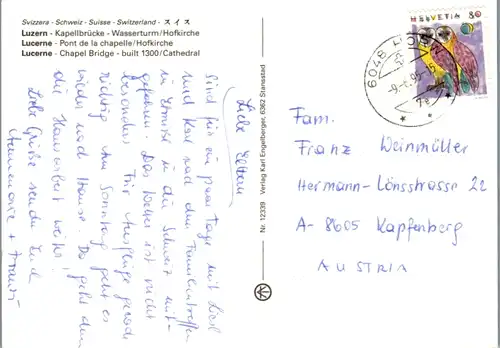 Svizzera - Schweiz - Suisse - Switzerland - スイス
Luzern - Kapellbrücke - Wasserturm/Hofkirche
Lucerne - Pont de la chapelle/Hofkirche
Lucerne - Chapel Bridge - built 1300/Cathedral
Liebe Eltern
sind für ein paar Tage mit Liesl
und Karl nach dem Familientreffen
in Ermise in die Schweiz mit-
gefahren. Das Wetter ist nicht
besonders für Ausflüge gerade
richtig. Am Sonntag geht es
wieder nach Hause. Da geht dann
die Hausarbeit weiter!
Liebe Grüße senden Euch
Annemarie + Franz
Nr. 12339 Verlag Karl Engelberger, 6362 Stansstad
HELVETIA 80
6048 HORW
Fam.
Franz Weinmüller
Hermann-Lönsstrasse 22
A-8605 Kapfenberg
AUSTRIA